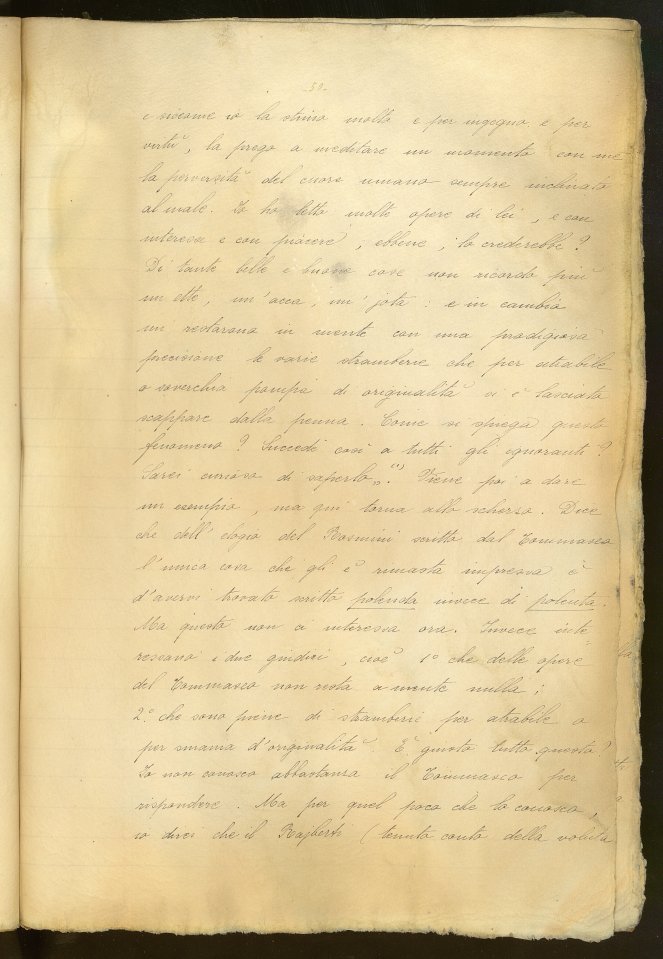 -50-
e siccome io la stimo molto e per ingegno e per
virtù, la prego a meditare un momento con me
la perversità del cuore umano sempre inclinato
al male. Io ho letto molte opere di lei, e con
interesse e con piacere, ebbene, lo crederebbe?
Di tante belle e buone cose non ricordo più
un ette, un'acca, un'jota: e in cambio
mi restarono in mente con una prodigiosa
precisione le varie stramberie che per atrabile
o soverchia pompa di originalità si è lasciato
scappare dalla penna. Come si spiega questo
fenomeno? Succede così a tutti gli ignoranti?
Sarei curioso di saperlo„.(1) Viene poi a dare
un esempio, ma qui torna allo scherzo. Dice
che dell'elogio del Rosmini scritto dal Tommaseo
l'unica cosa che gli è rimasta impressa è
d'avervi trovato scritto polenda invece di polenta.
Ma questo non ci interessa ora. Invece inte
ressano i due giudizi, cioè 1º che delle opere
del Tommaseo non resta a mente nulla;
2º che sono piene di stramberie per atrabile o
per smania d'originalità. È giusto tutto questo?
Io non conosco abbastanza il Tommaseo per
rispondere. Ma per quel poco che lo conosco,
io direi che il Rajberti (tenuto conto della voluta